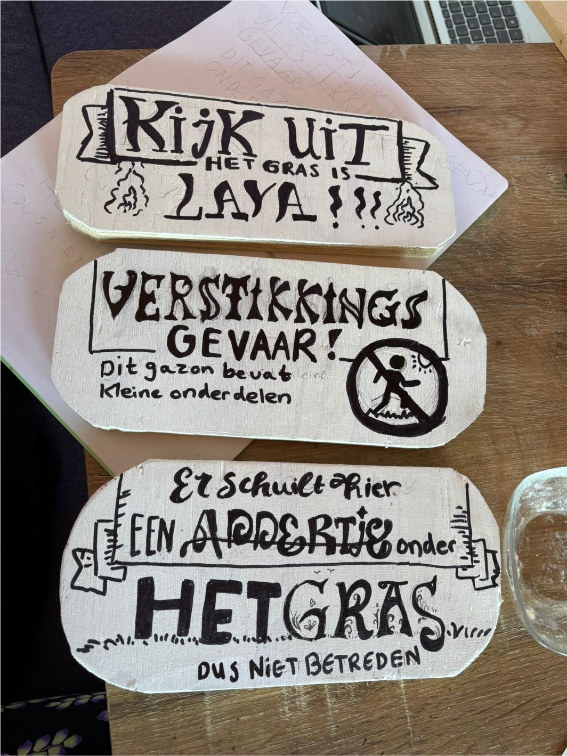 KijK UiT
HET GRAS IS
LAVA !!!!
VERSTIKKINGS
GEVAAR!
Dit gazon bevat
Kleine onderdelen
Er schuilt hier
EEN ADDERTJE onder
HET GRAS
DUS NiET BETREDEN